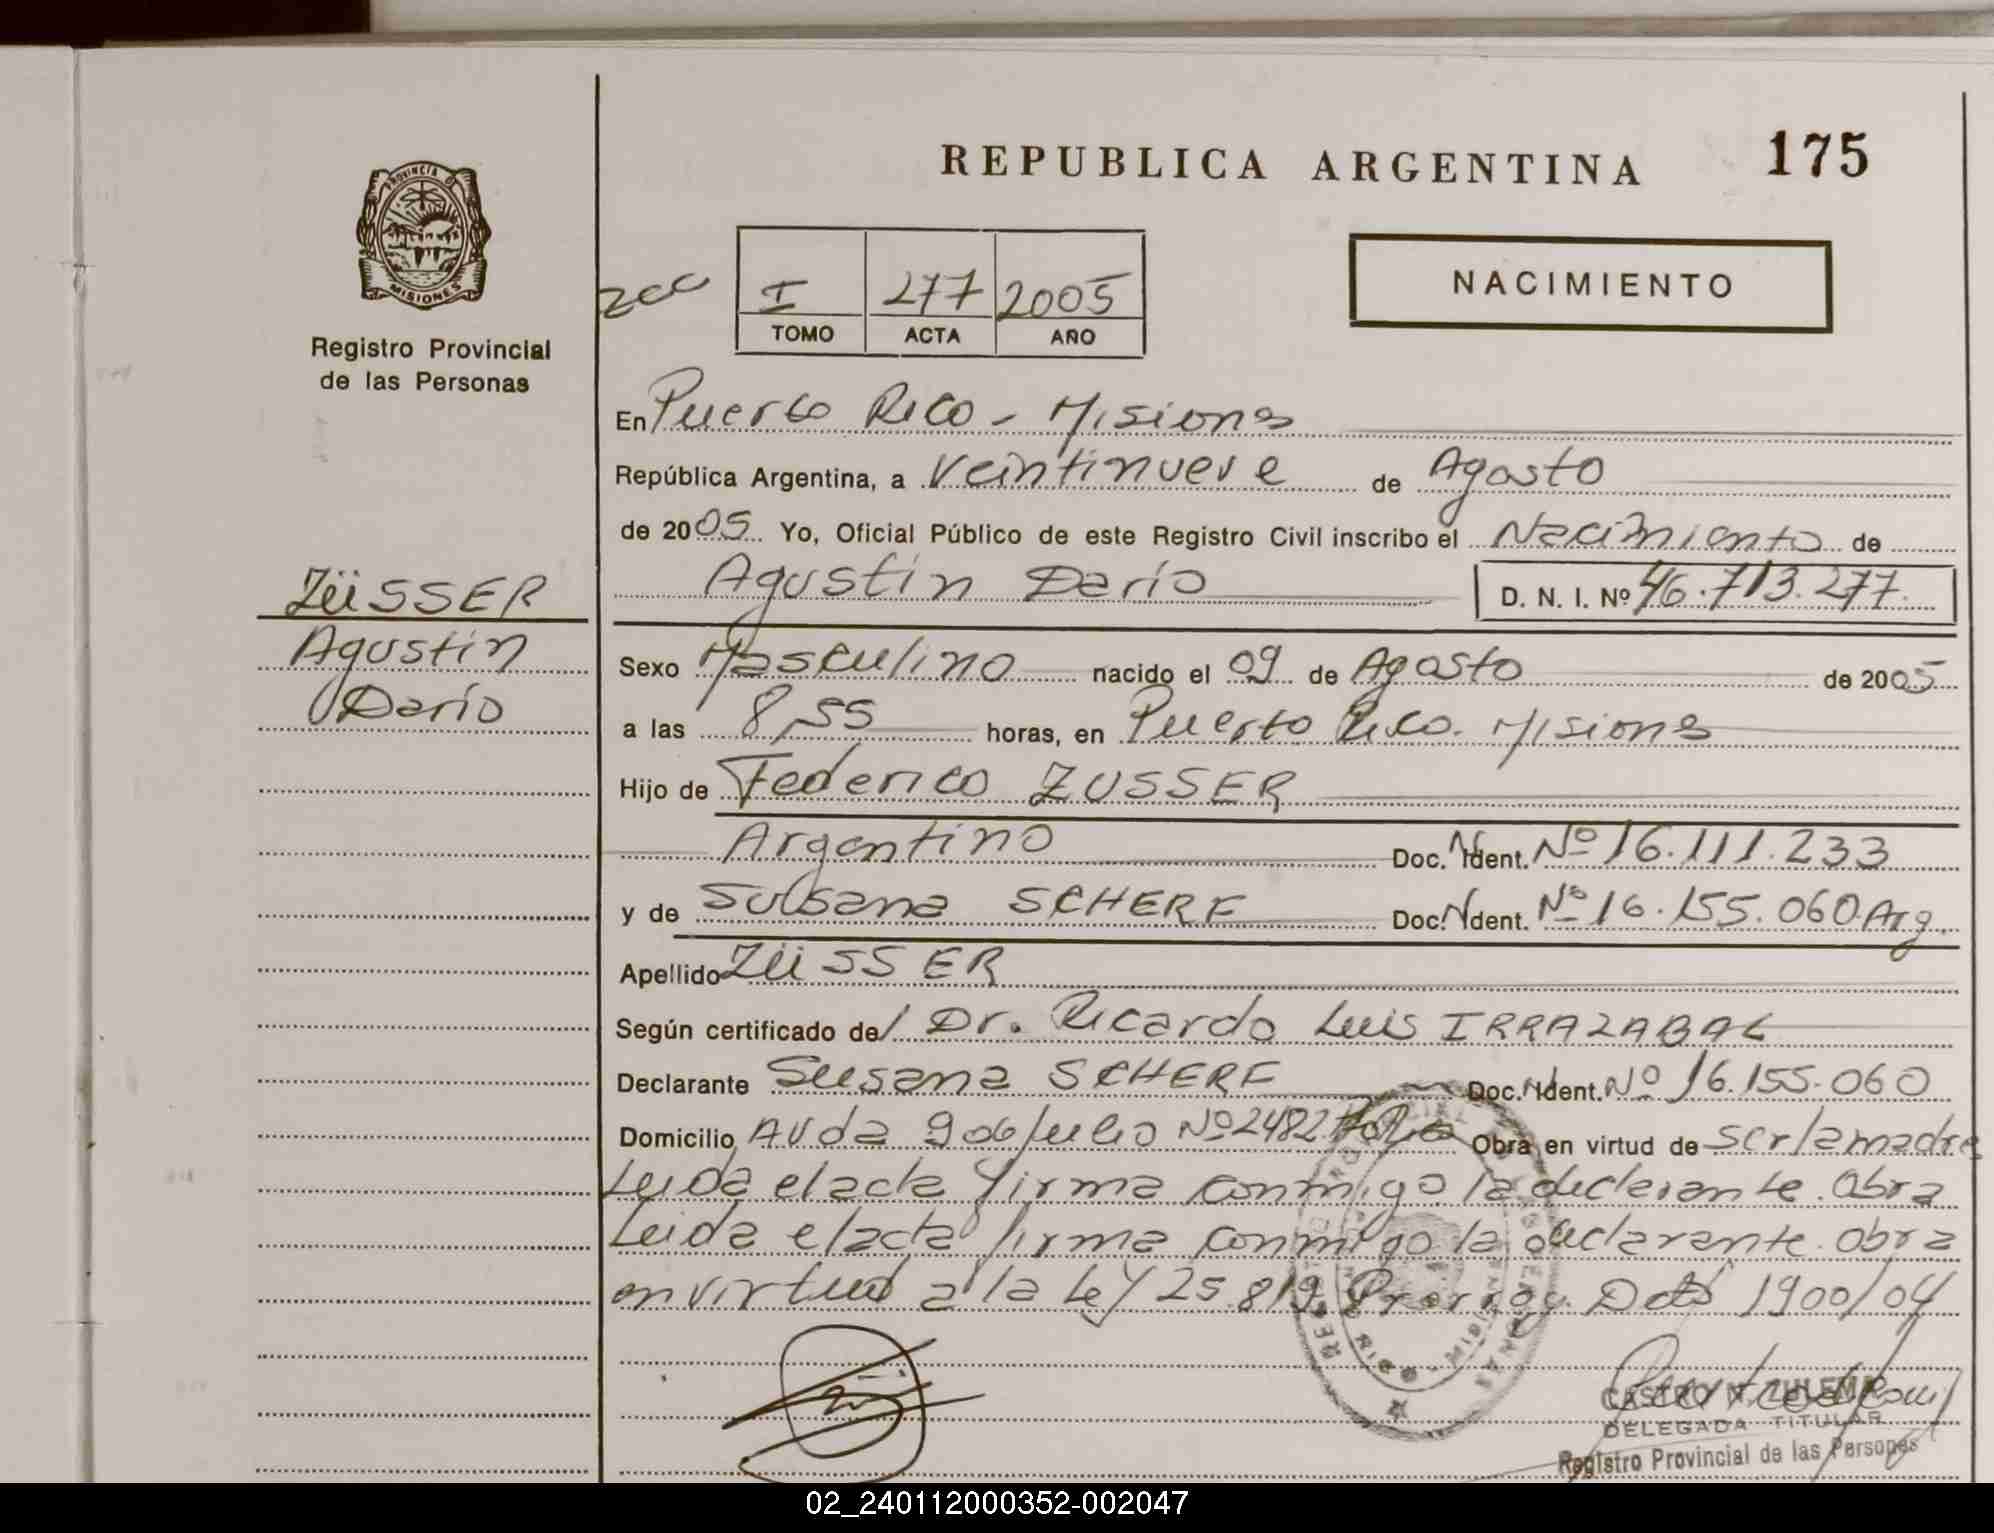 REPUBLICA ARGENTINA 175
PROVINCIA D
MISIONES
Registro Provincial
de las Personas
I 277 2005
TOMO ACTA AÑO
NACIMIENTO
En Puerto Rico - Misiones
República Argentina, a Veintinueve de Agosto
de 2005 Yo, Oficial Público de este Registro Civil inscribo el Nacimiento de
Agustín Darío D. N. I. Nº 46.713.277.
ZÜSSER
Agustín
Darío
Sexo Masculino nacido el 09 de Agosto de 2005
a las 8,55 horas, en Puerto Rico. Misiones
Hijo de Federico ZUSSER
Argentino Doc. Ident. Nº 16.111.233
y de Susana SCHERF Doc. Ident. Nº 16.155.060 Arg.
Apellido ZÜSSER
Según certificado del Dr. Ricardo Luis IRRAZABAL
Declarante Susana SCHERF Doc. Ident. Nº 16.155.060
Domicilio Avda 9 de Julio Nº 2482 Obra en virtud de ser la madre
Leida el acta firma conmigo la declarante. Obra
Leida el acta firma conmigo la declarante. Obra
en virtud a la Ley 25.819 Prorrog. Dcto 1900/04
CASTRO N. ZULEMA
DELEGADA TITULAR
Registro Provincial de las Personas
02_240112000352-002047